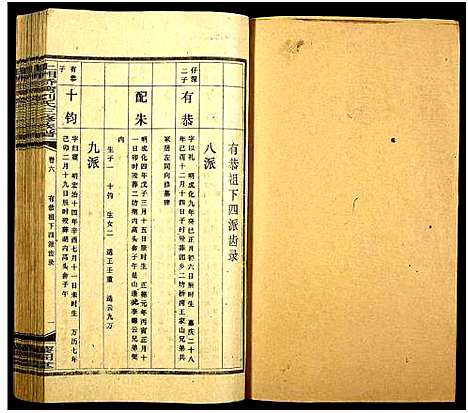 有恭祖下四派齿录
八派
仔深
二子
有恭
字以礼 明成化九年癸巳正月初六日辰时生 嘉庆二十八
年己酉十二月十四日子时殁葬湘乡二坊桥湾王家山兄弟共
冢居左同向修墓碑
配朱
明成化四年戊子三月十五日辰时生 正德元年丙寅正月十
一日卯时殁葬二坊
内
生子一 十钧 生女二 适工壬董 适云九万
九派
有恭
子
十钧
字曰震 明宏治十四年辛酉七月一日未时生 万历七年
己卯二月十九日辰时殁葬湖内高头仑子午
卷六
有恭祖下四派齿录
一